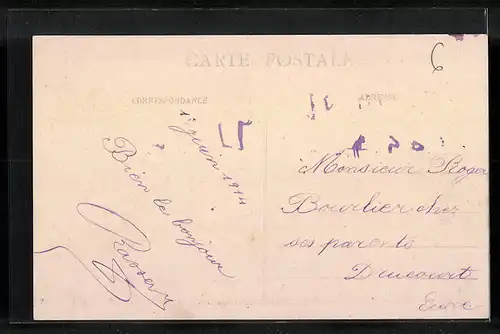 CARTE POSTALE
CORRESPONDANCE
ADRESSE
6
1er Juin 1914
Bien le bonjour
Monsieur Roger
Bourlier chez
ses parents
Drucourt
Eure